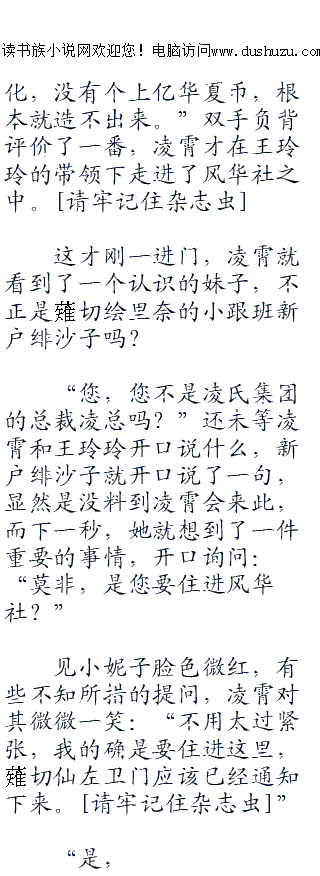 读书族小说网欢迎您！电脑访问www.dushuzu.com
化，没有个上亿华夏币，根
本就造不出来。”双手负背
评价了一番，凌霄才在王玲
玲的带领下走进了风华社之
中。[请牢记住杂志虫]
这才刚一进门，凌霄就
看到了一个认识的妹子，不
正是薙切绘里奈的小跟班新
户绯沙子吗？
“您，您不是凌氏集团
的总裁凌总吗？”还未等凌
霄和王玲玲开口说什么，新
户绯沙子就开口说了一句，
显然是没料到凌霄会来此，
而下一秒，她就想到了一件
重要的事情，开口询问：
“莫非，是您要住进风华
社？”
见小妮子脸色微红，有
些不知所措的提问，凌霄对
其微微一笑：“不用太过紧
张，我的确是要住进这里，
薙切仙左卫门应该已经通知
下来。[请牢记住杂志虫]”
“是，